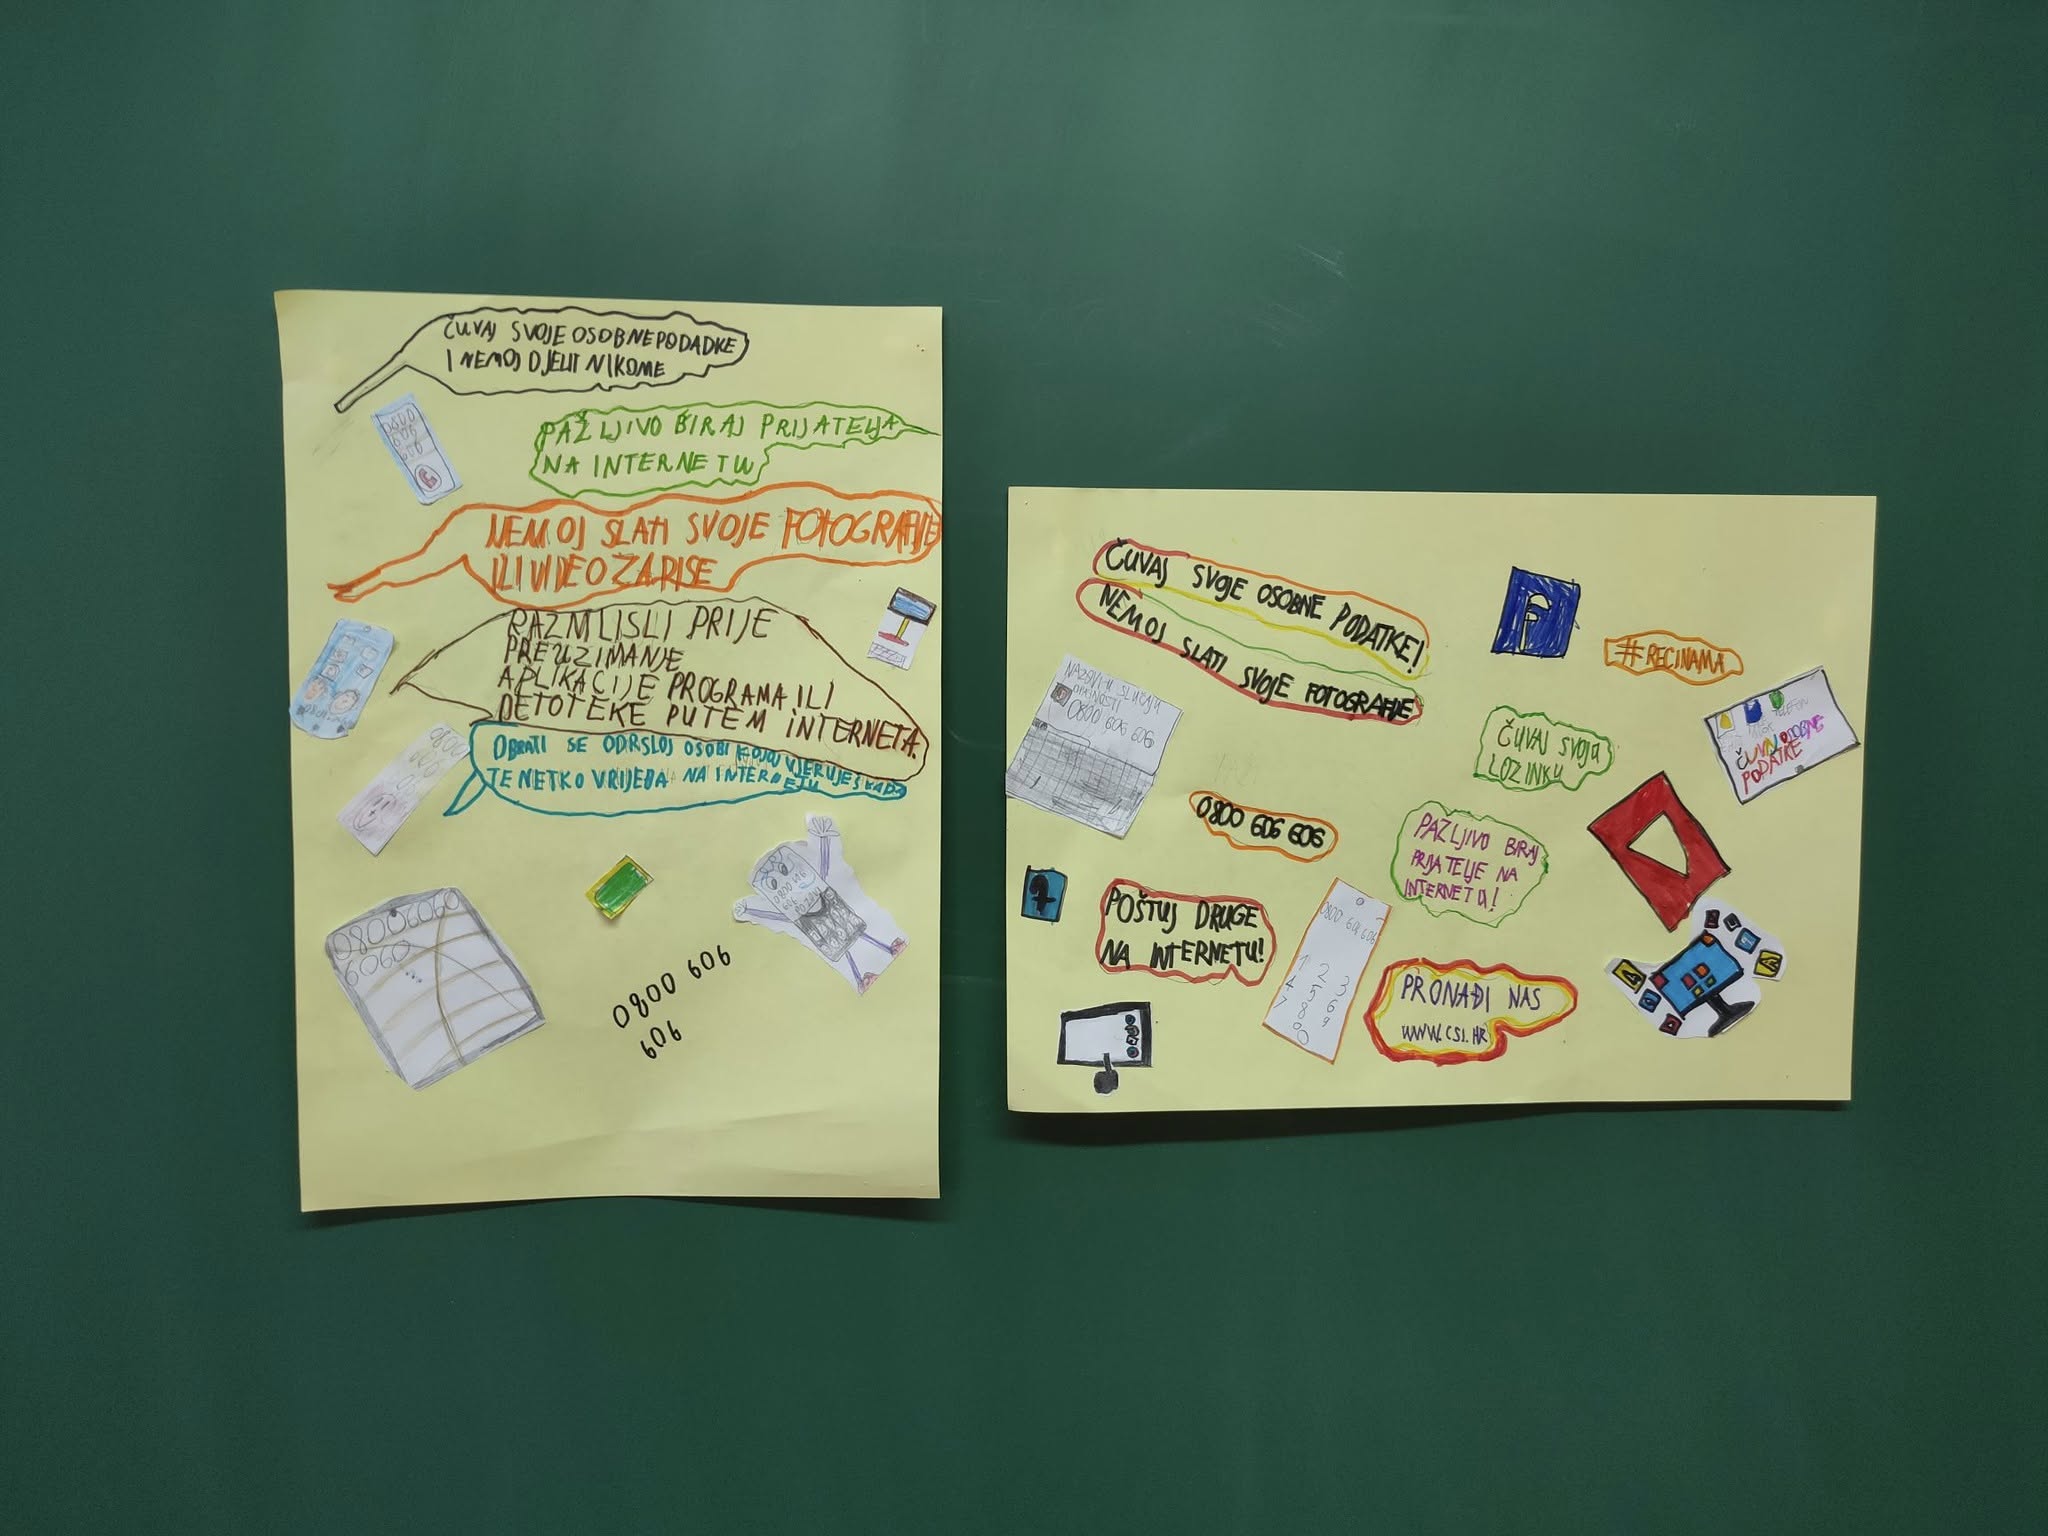 ČUVAJ SVOJE OSOBNE PODADKE
I NEMOJ DJELIT NIKOME
0800
606
606
PAŽLJIVO BIRAJ PRIJATELJA
NA INTERNETU
NEMOJ SLATI SVOJE FOTOGRAFIJE
ILI VIDEOZAPISE
RAZMLISLI PRIJE
PREUZIMANJE
APLIKACIJE PROGRAMA ILI
DETOTEKE PUTEM INTERNETA.
OBRATI SE ODRSLOJ OSOBI KOJOJ VJERUJEŠ KADA
TE NETKO VRIJEĐA NA INTERNETU
0800
606
606
08006060
6060
0800 606
606
0800 606
606
ČUVAJ SVOJE OSOBNE PODATKE!
NEMOJ SLATI SVOJE FOTOGRAFIJE
F
#RECINAMA
NAZOVI U SLUČAJU
OPASNOSTI
0800 606 606
ČUVAJ SVOJU
LOZINKU
TELEFON
ČUVAJ OSOBNE
PODATKE
0800 606 606
PAZLJIVO BIRAJ
PRIJATELJE NA
INTERNETU!
POŠTUJ DRUGE
NA INTERNETU!
0800 606 606
1 2 3
4 5 6
7 8 9
0
PRONAĐI NAS
WWW.CSI.HR